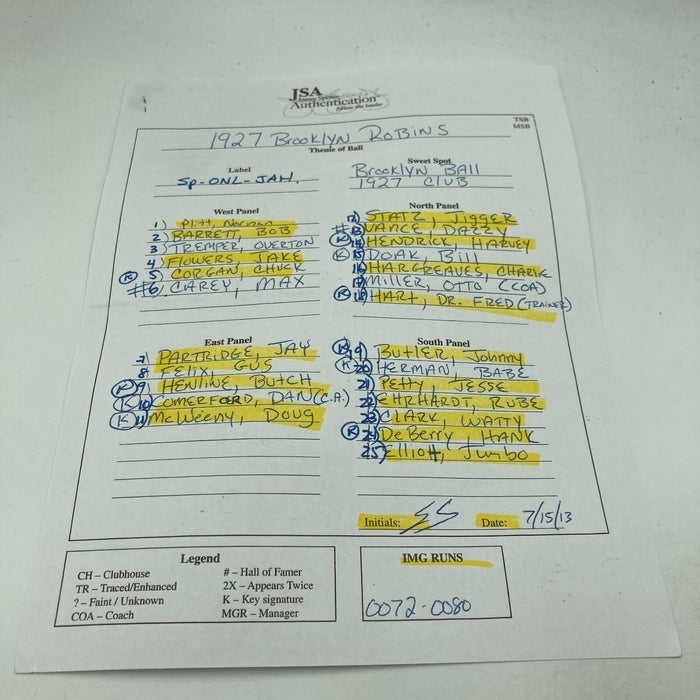 JSA
James Spence
Authentication
follow the leader
TSB
MSB
1927 Brooklyn ROBINS
Theme of Ball
Label
Sp-ONL-JAH.
Sweet Spot
Brooklyn BALL
1927 CLUB
West Panel
1) Pitt, Norman
2) BARRETT, BOB
3 TREMPER, OVERTON
4) FLOWERS, JAKE
K 5) CORGAN, CHUCK
#6) CAREY, MAX
North Panel
12) STATZ, JIGGER
#13) VANCE, DAZZY
K 14) HENDRICK, HARVEY
K 15) DOAK, Bill
16) HARGREAVES, CHARLIE
17) MILLER, OTTO (COA)
K 18) HART, DR. FRED (TRAINER)
East Panel
7) PARTRIDGE, JAY
8 FELIX, GUS
K 9) HENLINE, BUTCH
K 10) COMERFORD, DAN (C.A.)
K 11) McWEENY, DOUG
South Panel
K 19) BUTLER, Johnny
K 20) HERMAN, BABE
21) Petty, JESSE
22) EHRHARDT, RUBE
23) CLARK, WATTY
K 24) DeBERRY, HANK
25) Elliott, Jumbo
Initials: SS Date: 7/15/13
Legend
CH – Clubhouse
TR – Traced/Enhanced
? – Faint / Unknown
COA – Coach
# – Hall of Famer
2X – Appears Twice
K – Key signature
MGR – Manager
IMG RUNS
0072-0080